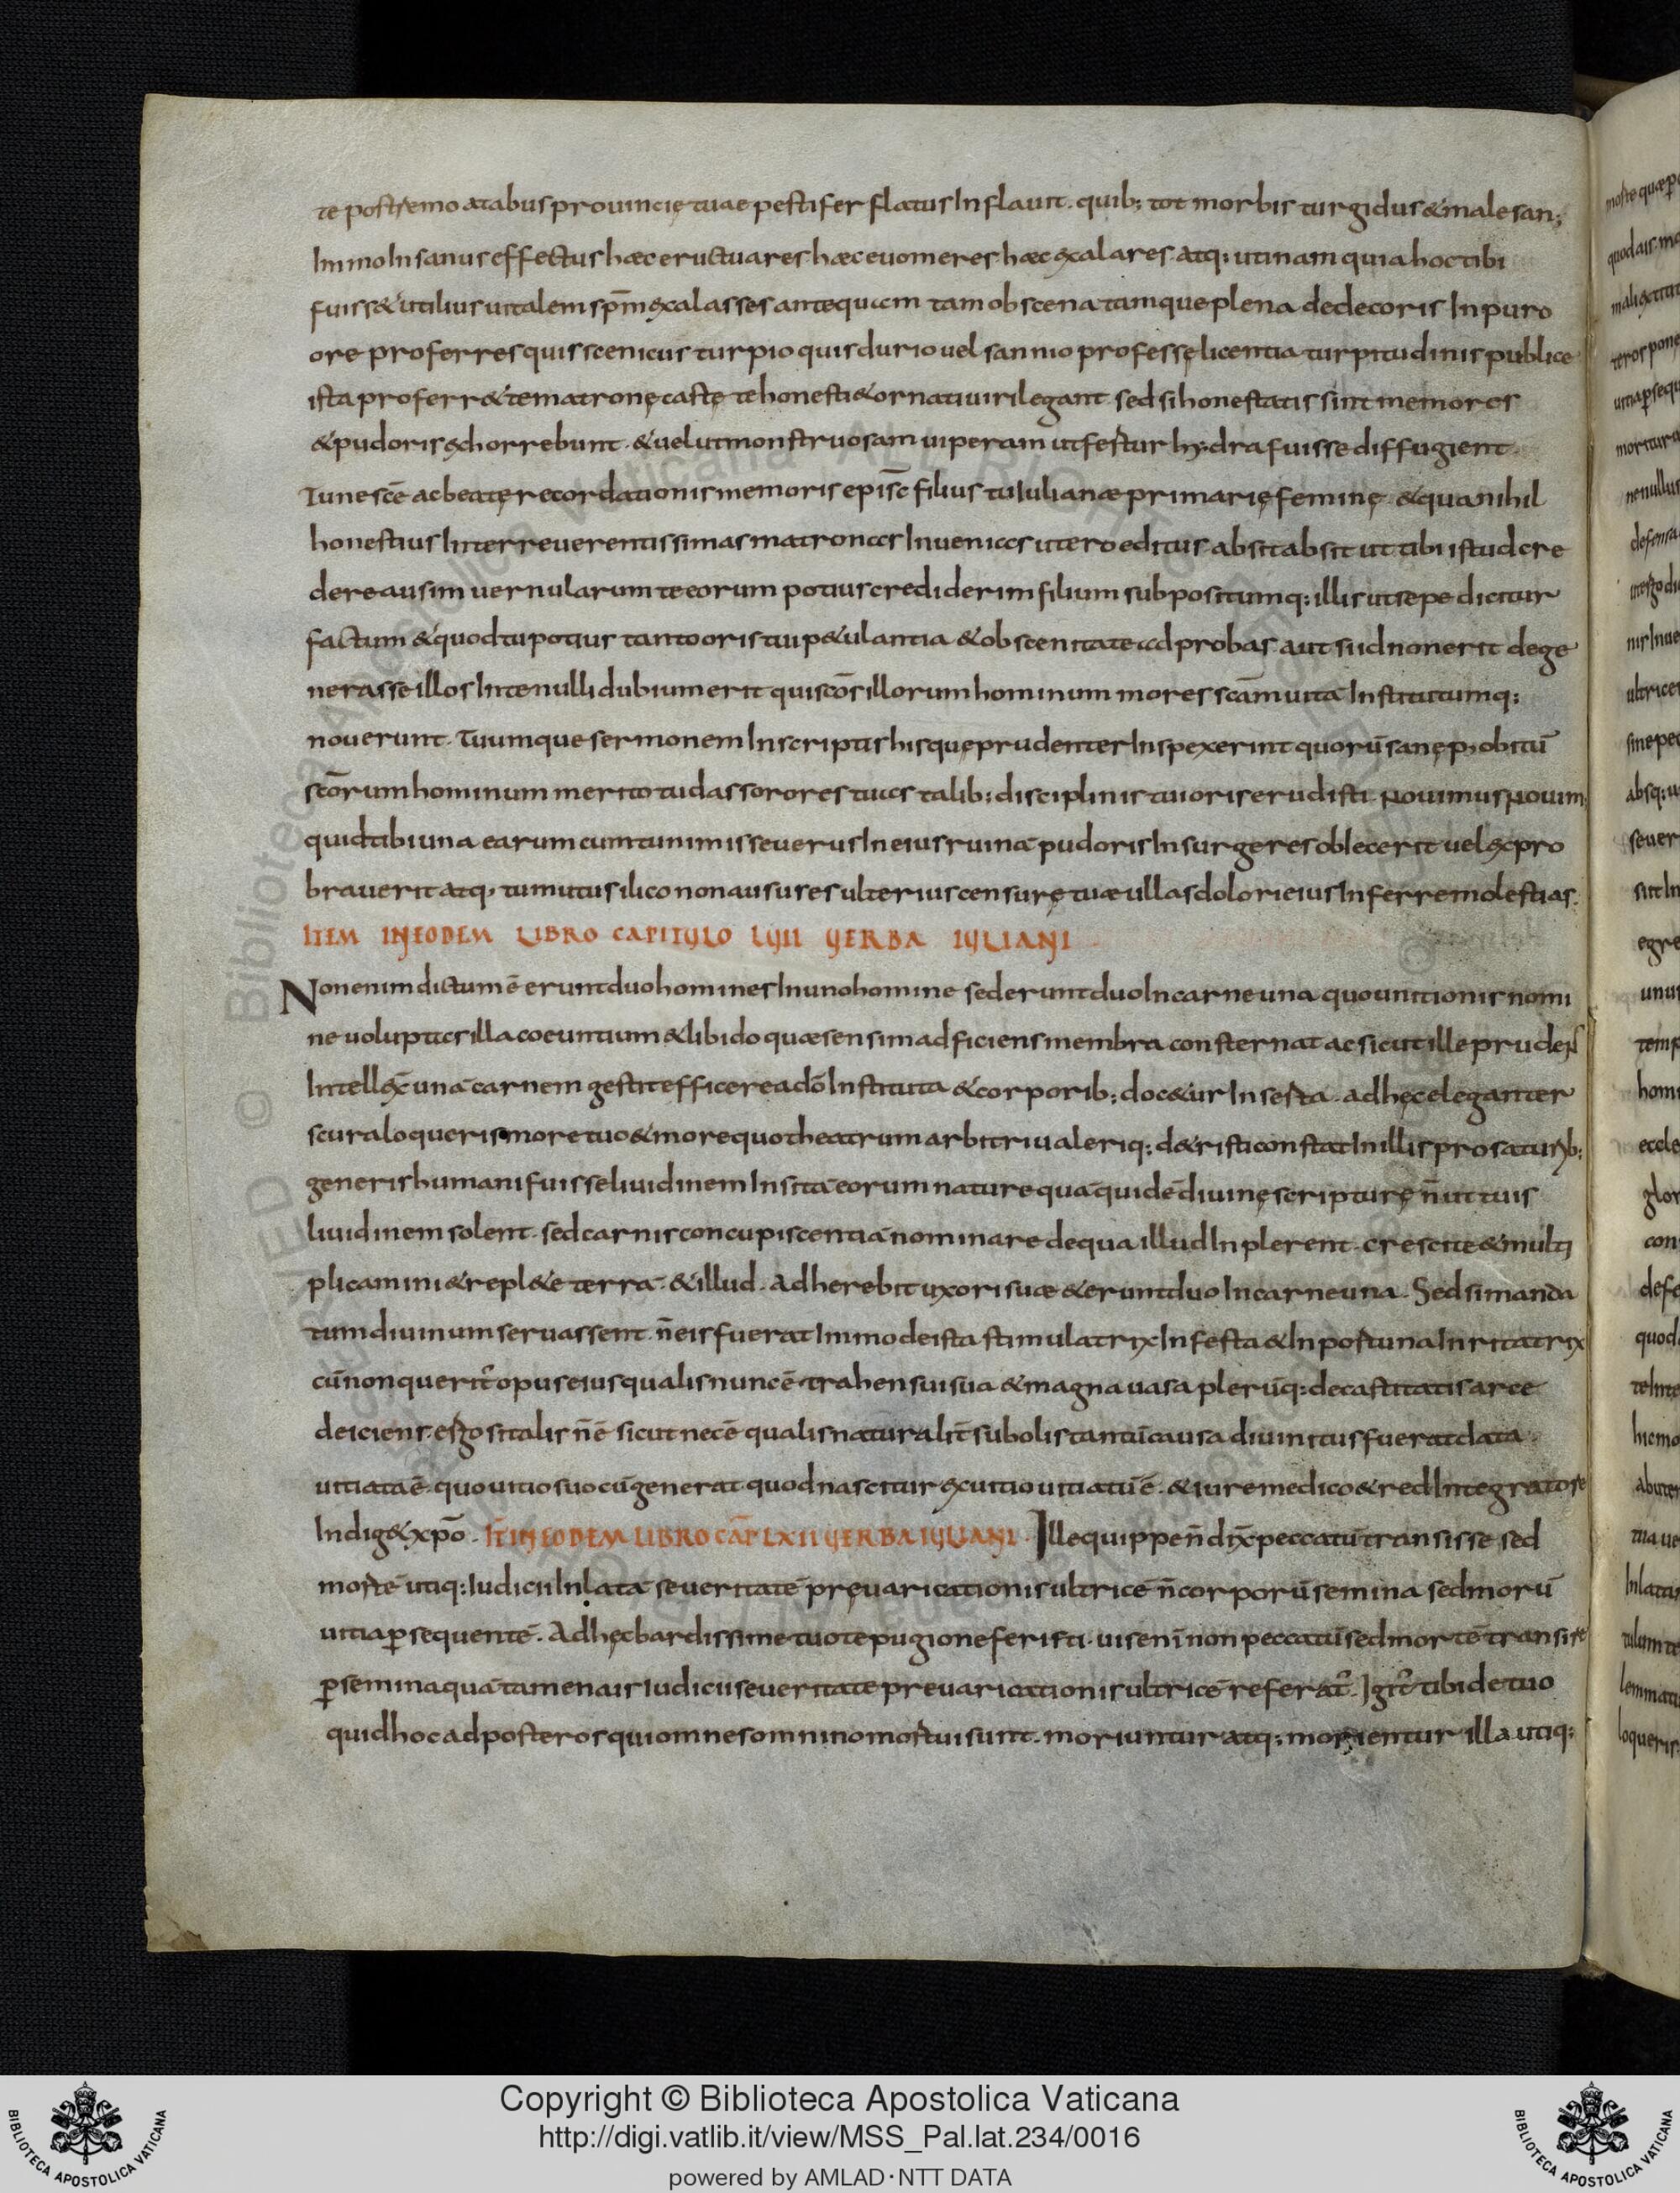 te postremo atabus prouincię tuae pestifer flatus Inflauit. quib; tot morbis turgidus & male san;
Immo Insanus effectus hæc eructuares hæc euomeres hæc exalares. atq; utinam quia hoc tibi
fuiss& utilius uitalem spm̄ exalasses antequam tam obscena tamque plena dedecoris Inpuro
ore proferres quis scenicus turpio quis durio uel sannio professę licentia turpitudinis publice
ista proferr& te matronę castę te honesti & ornati uiri legant. sed si honestatis sint memores
& pudoris exhorrebunt. & uelut monstruosam uiperam ut festur hydra fuisse diffugient.
Tune scē ac beatę recordationis memoris episc̄ filius tu Iulianæ primarię feminę. & qua nihil
honestius Inter reuerentissimas matronas Inuenias utero editus. absit absit ut tibi istud cre
dere ausim uernularum te eorum potius crediderim filium subpositumq; illis ut sepe dicitur
factum & quod tu potius tanto oris tui p&ulantia & obscenitate adprobas. aut si id non erit dege
nerasse illos Inte nulli dubium erit qui scōs illorum hominum mores scām uitā Institutumq;
nouerunt. Tuumque sermonem Inscriptis hisquę prudenter Inspexerint quorū sanę p; obitū
scōrum hominum merito tu das sorores tuas talib; disciplinis tui oris erudisti. Nouimus nouim;
quid tibi una earum cum tu nimis seuerus In eius ruinā pudoris Insurgeres oblecerit uel expro
brauerit atq; tu mutus ilico non ausus es ulterius censurę tuæ ullas dolori eius Inferre molestias.
ITEM INEODEM LIBRO CAPITULO LVII VERBA IULIANI
Non enim dictum ē erunt duo homines In uno homine sed erunt duo In carne una quo unitionis nomi
ne uoluptas illa coeuntium & libido quæ sensim adficiens membra consternat ac sicut ille prudens
Intellex̄ unā carnem gestit efficere a dō Instituta & corporib; doc&ur Inserta. ad hęc eleganter
scura loqueris more tuo & more quo theatrum arbitri ualeriq; d&risti constat In illis prosatorib;
generis humani fuisse liuidinem Insitā eorum nature quā quidē diuinę scripturę n̄ ut tuis
liuidinem solent. sed carnis concupiscentiā nominare de qua illud Inplerent. crescite & multi
plicamini & repl&e terrā. & illud. Adherebit uxori suæ & erunt duo In carne una. Sed si manda
tum diuinum seruassent. n̄ eis fuerat Immode ista stimulatrix Infesta & Inportuna Inritatrix
cū non querit̄ opus eius qualis nunc ē trahens ui sua & magna uasa plerūq; de castitatis arce
deiciens. ergo si talis n̄ ē sicut nec ē qualis naturalit̄ subolis tantū causa diuinitus fuerat data.
uitiata ē. quo uitio suo cū generat. quod nascitur ex uitio uitiatū ē. & iure medico & redIntegratore
Indig& xpō. IT̄ INEODEM LIBRO CAP̄ LXII VERBA IULIANI. Ille quippe n̄ dix̄ peccatū transisse sed
mortē utiq; Iudicii Inlatā seueritatē pręuaricationis ultricē n̄ corporū semina sed morū
uitia p̄sequentē. Ad hęc bardissime tuo te pugione feristi. uis enī non peccatū sed mortē transire
p̄ semina quā tamen ais Iudicii seueritate preuaricationis ultricē referat̄. Igit̄ tibi de tuo
quid hoc ad posteros qui omnes omnino mortui sunt. moriuntur atq; morientur illa utiq;
Copyright © Biblioteca Apostolica Vaticana
http://digi.vatlib.it/view/MSS_Pal.lat.234/0016
powered by AMLAD·NTT DATA
BIBLIOTECA APOSTOLICA VATICANA
BIBLIOTECA APOSTOLICA VATICANA